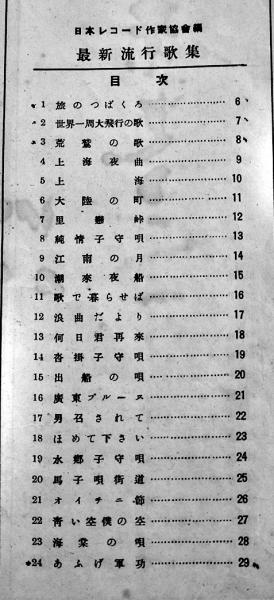 日本レコード作家協會編
最新流行歌集
目次
1 旅のつばくろ 6
2 世界一周大飛行の歌 7
3 荒鷲の歌 8
4 上海夜曲 9
5 上海 10
6 大陸の町 11
7 里戀峠 12
8 純情子守唄 13
9 江南の月 14
10 潮來夜船 15
11 歌で暮らせば 16
12 浪曲だより 17
13 何日君再來 18
14 沓掛子守唄 19
15 出船の唄 20
16 廣東ブルース 21
17 男召されて 22
18 ほめて下さい 23
19 水郷子守唄 24
20 馬子唄街道 25
21 オイチニ節 26
22 青い空僕の空 27
23 海棠の唄 28
24 あふげ軍功 29